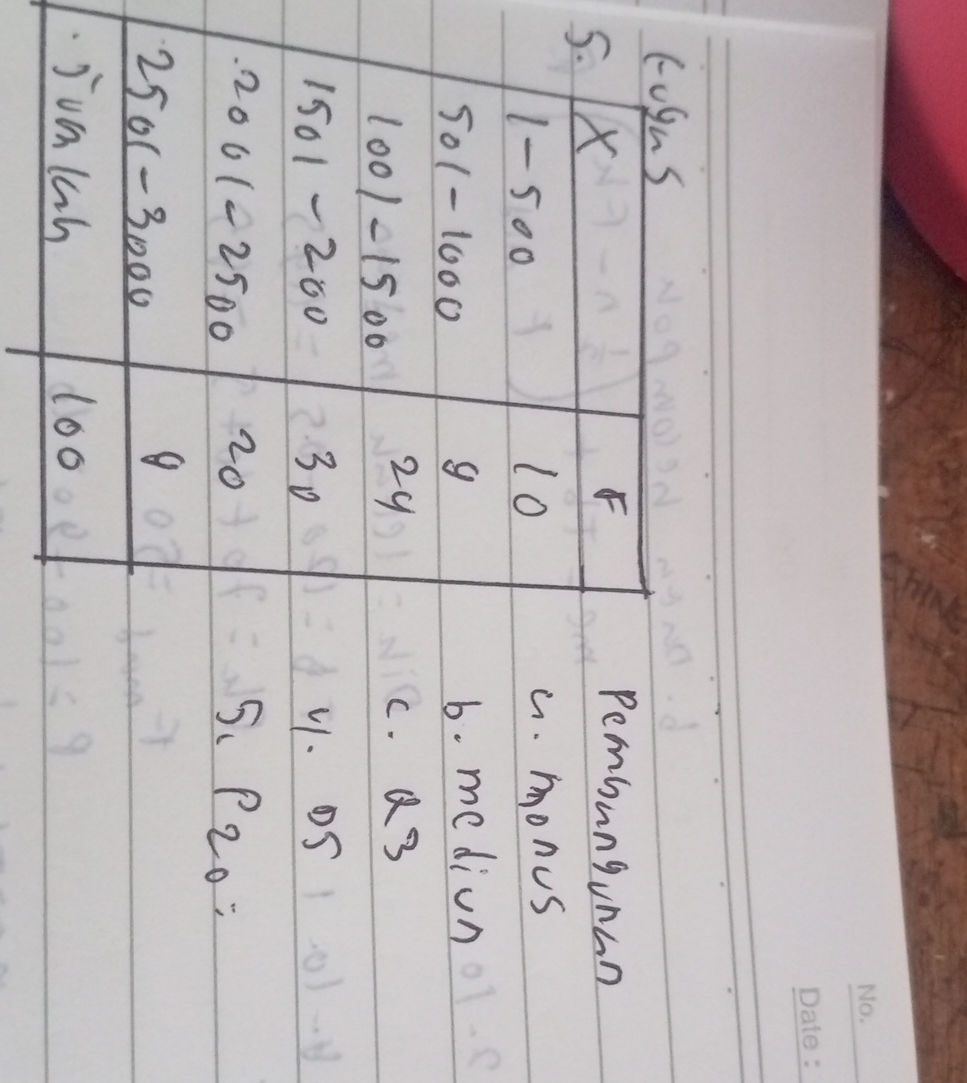 No.
Date :
tugas
5.
X F
1-500 10
501-1000 9
1001-1500 24
1501-200 30
2001-2500 20
2501-3000 9
jumlah 100
a. monus
b. median
c. Q3
4. D5
5. P20: